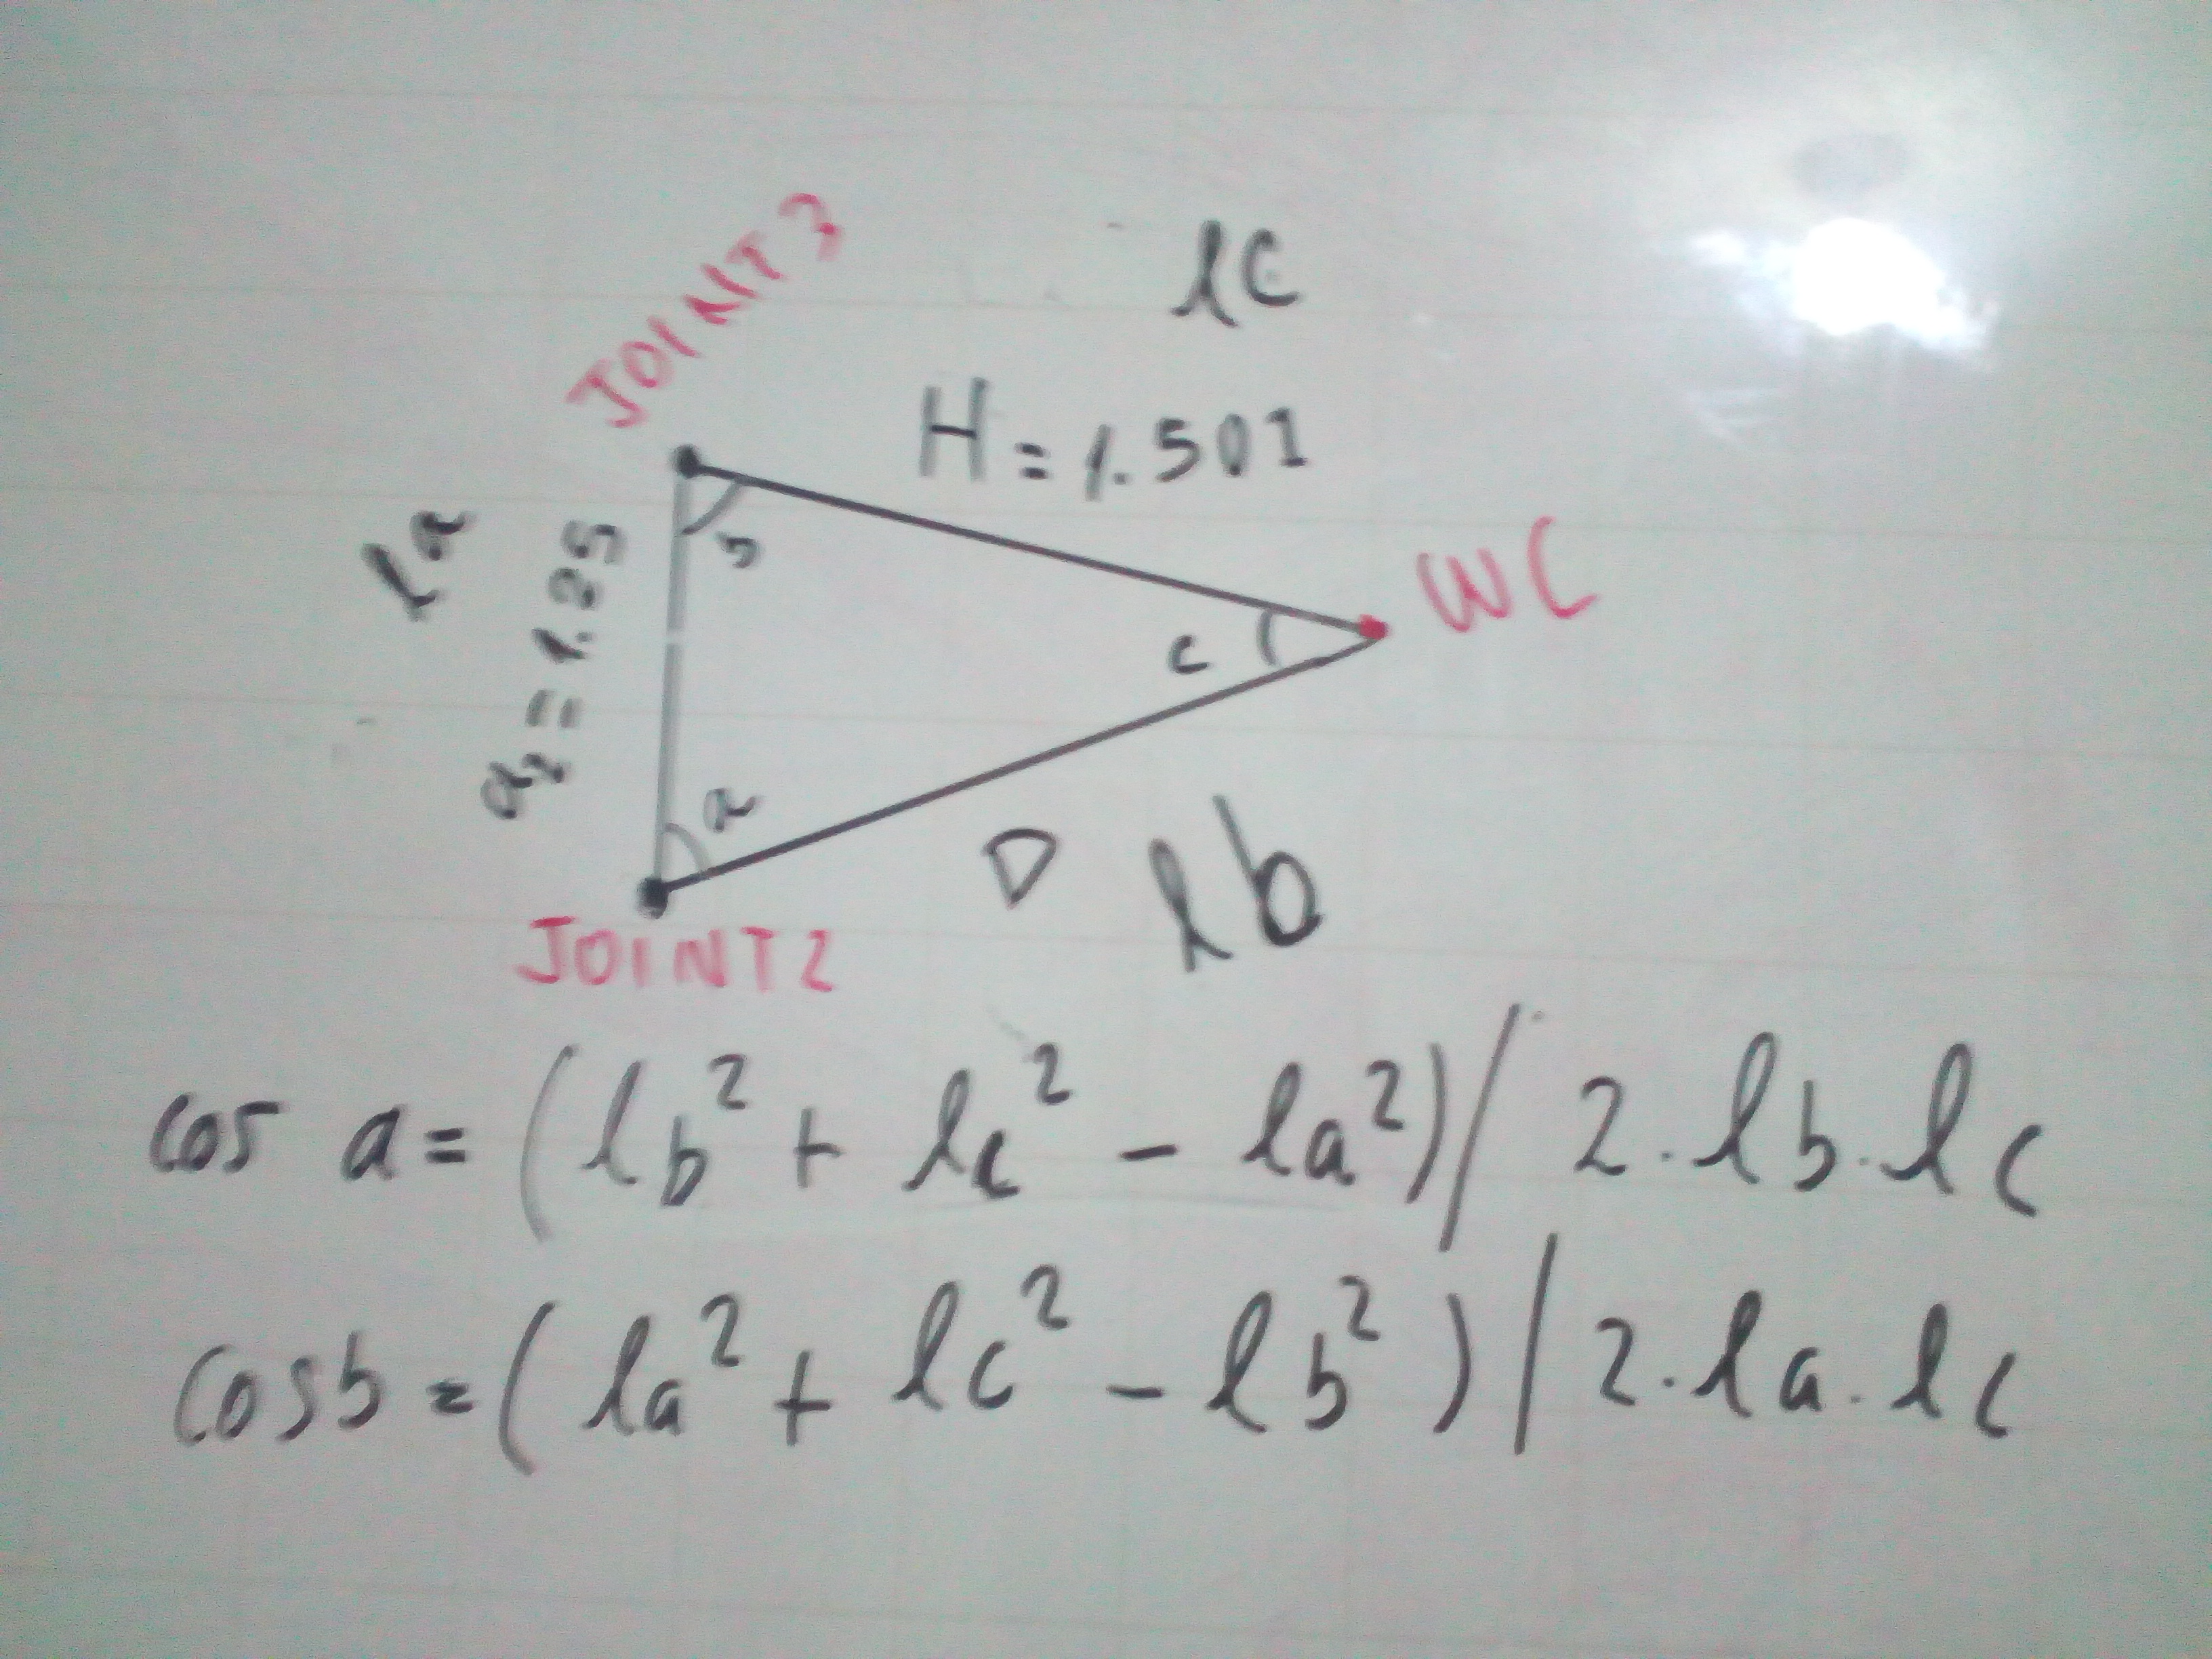 JOINT3
lc
H = 1.501
la
a₂ = 1.25
b
WC
c
a
D
lb
JOINT2
cos a = (lb² + lc² - la²) / 2 . lb . lc
cosb = (la² + lc² - lb²) / 2 . la . lc